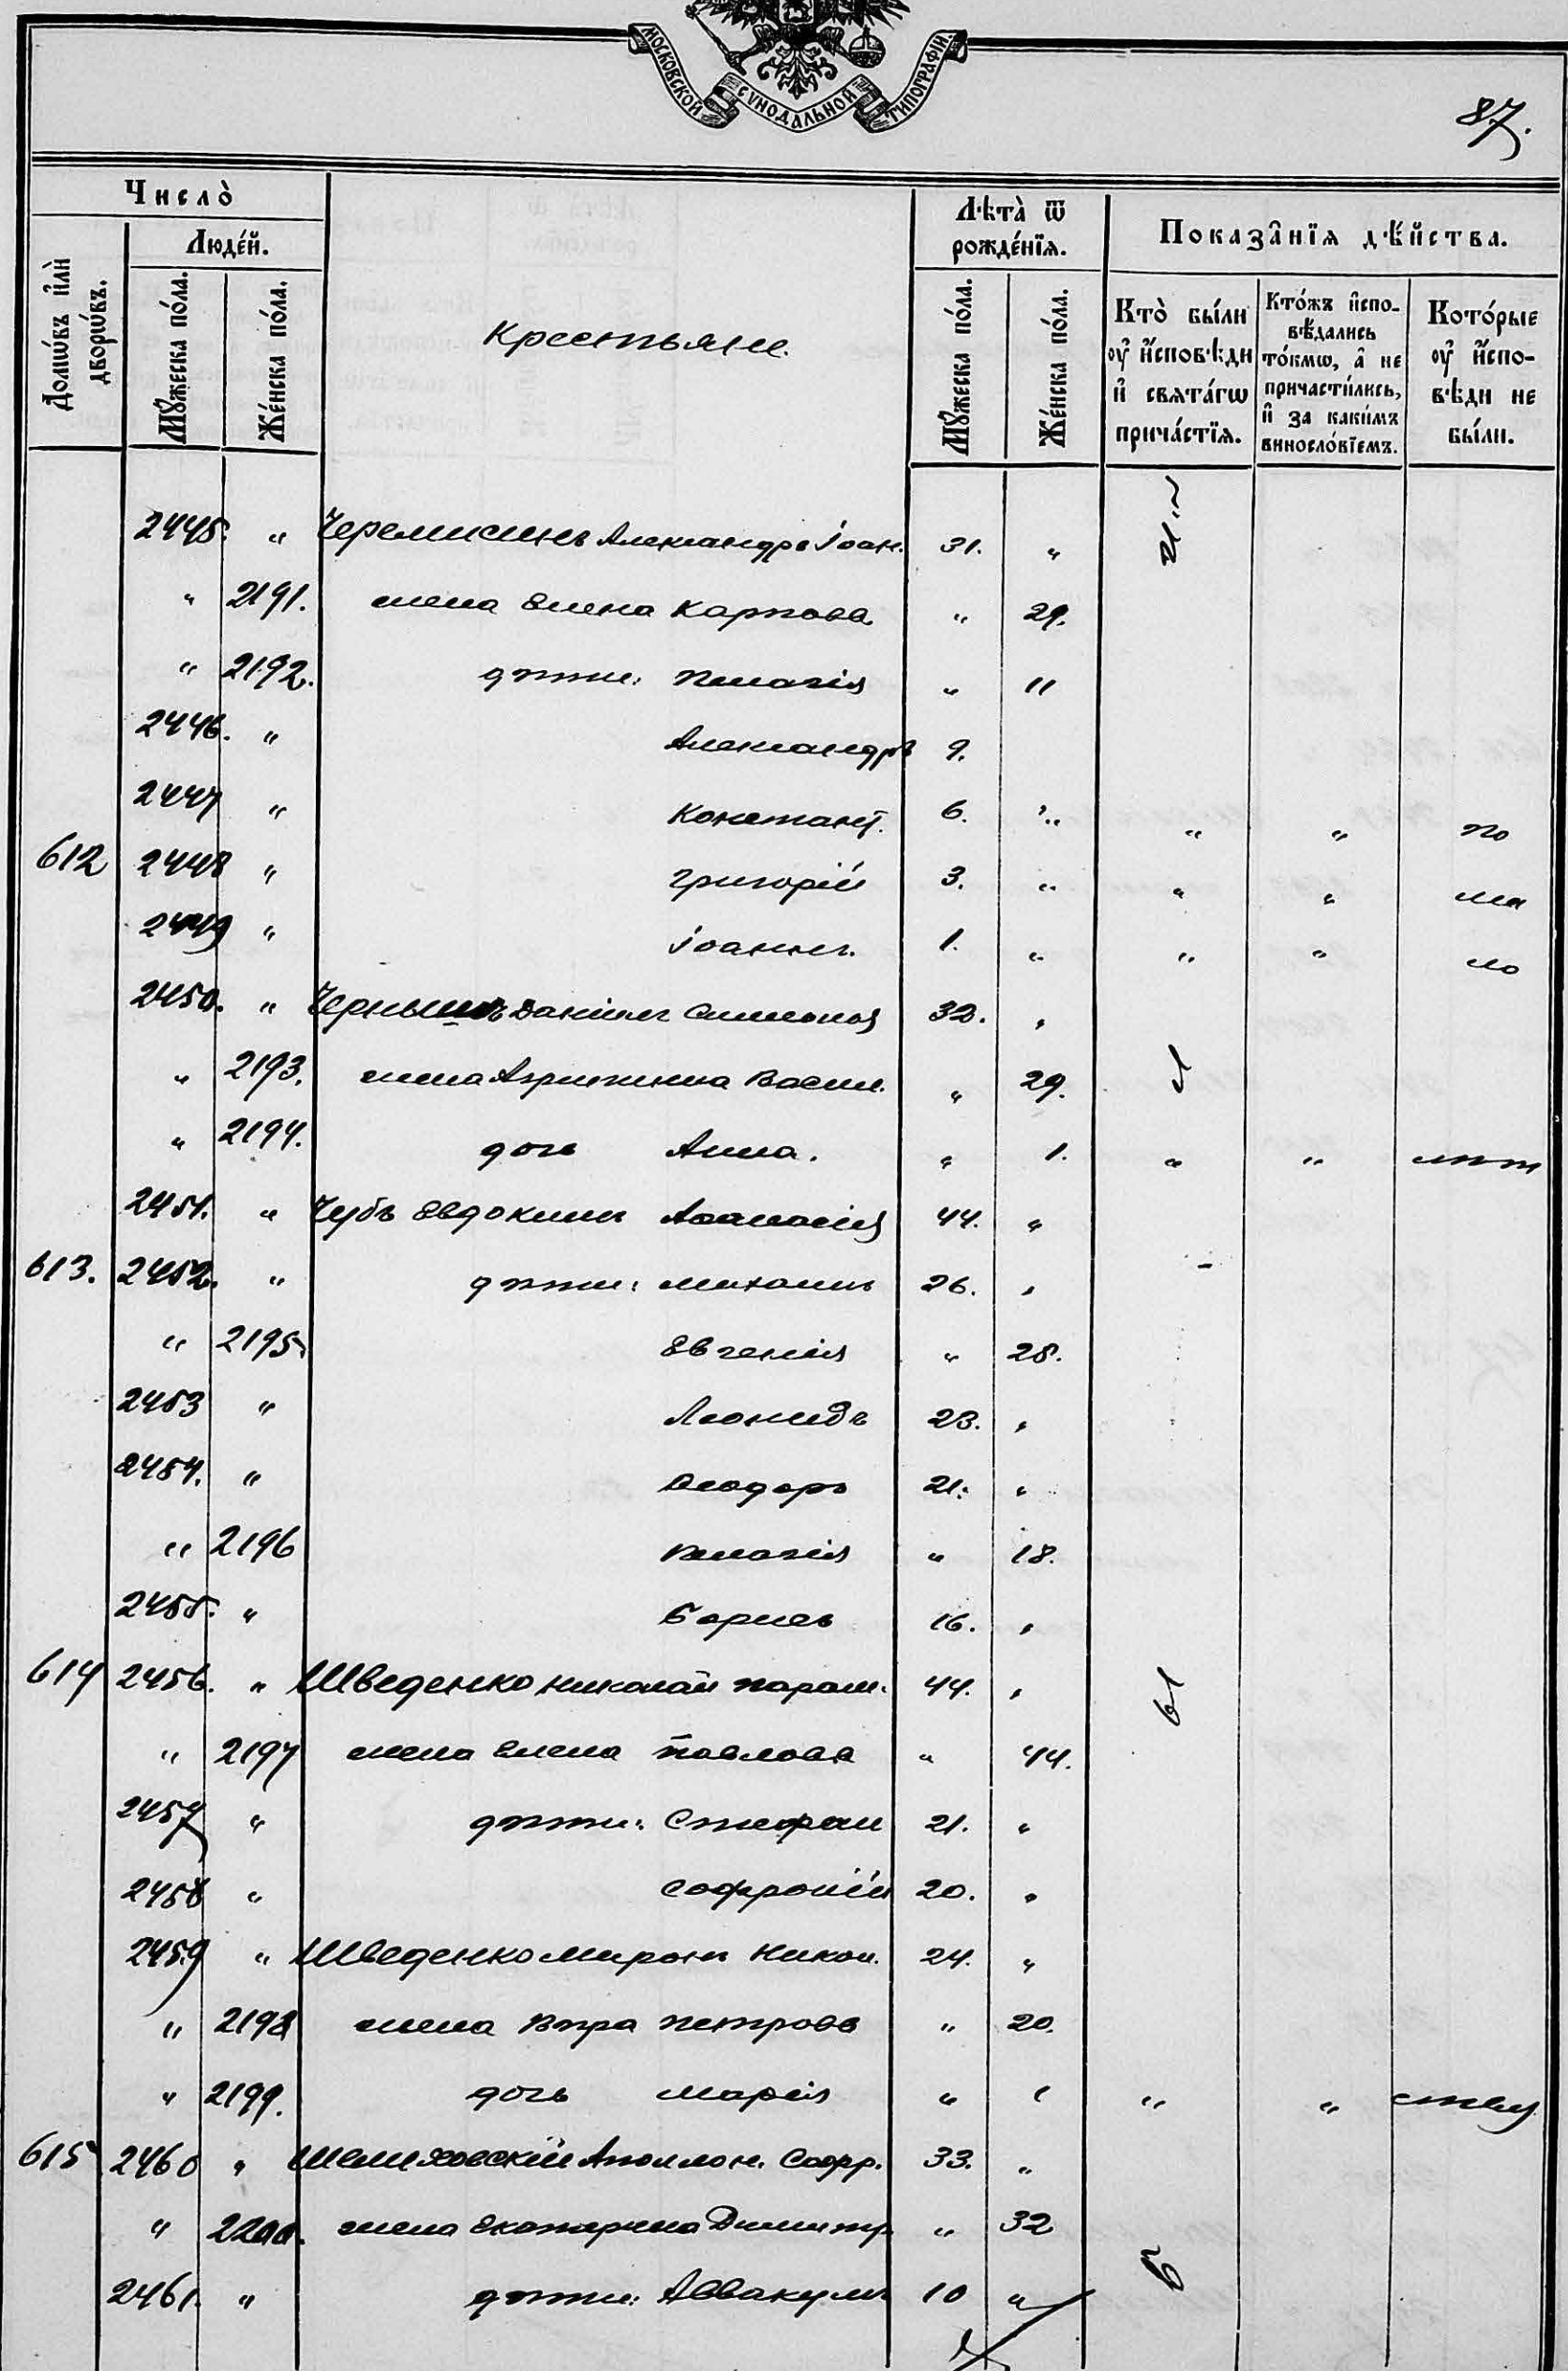 МОСКОВСКОЙ СѴНОДАЛЬНОЙ ТИПОГРАФІИ
87.
Число̀
Людéй.
Домѡ́въ и҆лѝ дворѡ́въ.
Мꙋ́жеска по́ла.
Же́нска по́ла.
Крестьяне.
Лѣта̀ ѿ рожде́нїѧ.
Мꙋ́жеска по́ла.
Же́нска по́ла.
Показа̂нїѧ дѣ́йства.
Кто̀ бы́ли оу҆ и҆́сповѣди и҆ свѧта́гѡ прича́стїѧ.
Кто́жъ и҆спо-вѣ́дались то́кмѡ, а҆ не причасти́лись, и҆ за каки́мъ винословїемъ.
Кото́рые оу҆ и҆́спо-вѣди не бы́ли.
2445. " Черемисинъ Александръ Іоан. 31. "
" 2191. жена Елена Карпова " 29.
" 2192. дѣти: Пелагія " 11
2446. " Александръ 9.
2447 " Констант. 6. " " " по
612 2448 " Григорій 3. " " " ма
2449 " Іоаннъ. 1. " " " ло
2450. " Чернышъ Даніилъ Симеонов 32. "
" 2193. жена Агриппина Васил. " 29.
" 2194. дочь Анна. " 1. " " лѣт
2451. " Чубъ Евдокимъ Аѳанасіев 44. "
613. 2452. " дѣти: Михаилъ 26. "
" 2195. Евгенія " 28.
2453 " Леонидъ 23. "
2454. " Ѳеодоръ 21. "
" 2196 Пелагія " 18.
2455. " Борисъ 16. "
614 2456. " Шведенко Николай Парам. 44. "
" 2197 жена Елена Павлова " 44.
2457 " дѣти: Стефан 21. "
2458 " Софроній 20. "
2459 " Шведенко Миронъ Никол. 24. "
" 2198 жена Вѣра Петрова " 20.
" 2199. дочь Марія " 1 " " ству
615 2460 " Шелиховскій Аполлон. Софр. 33. "
" 2200. жена Екатерина Димитр " 32
2461. " дѣти: Аввакумъ 10 "